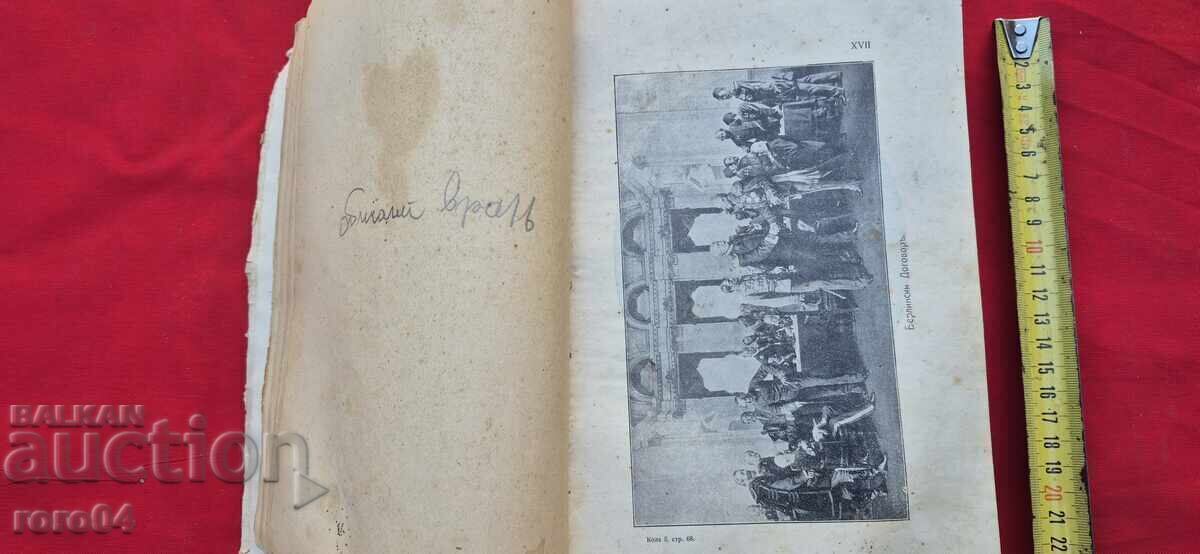 врагъ
XVII
Берлински Договоръ.
Кола 5, стр. 68.
2 3 4 5 6 7 8 9 10 11 12 13 14 15 16 17 18 19 20 21 22
BALKAN
auction
roro04